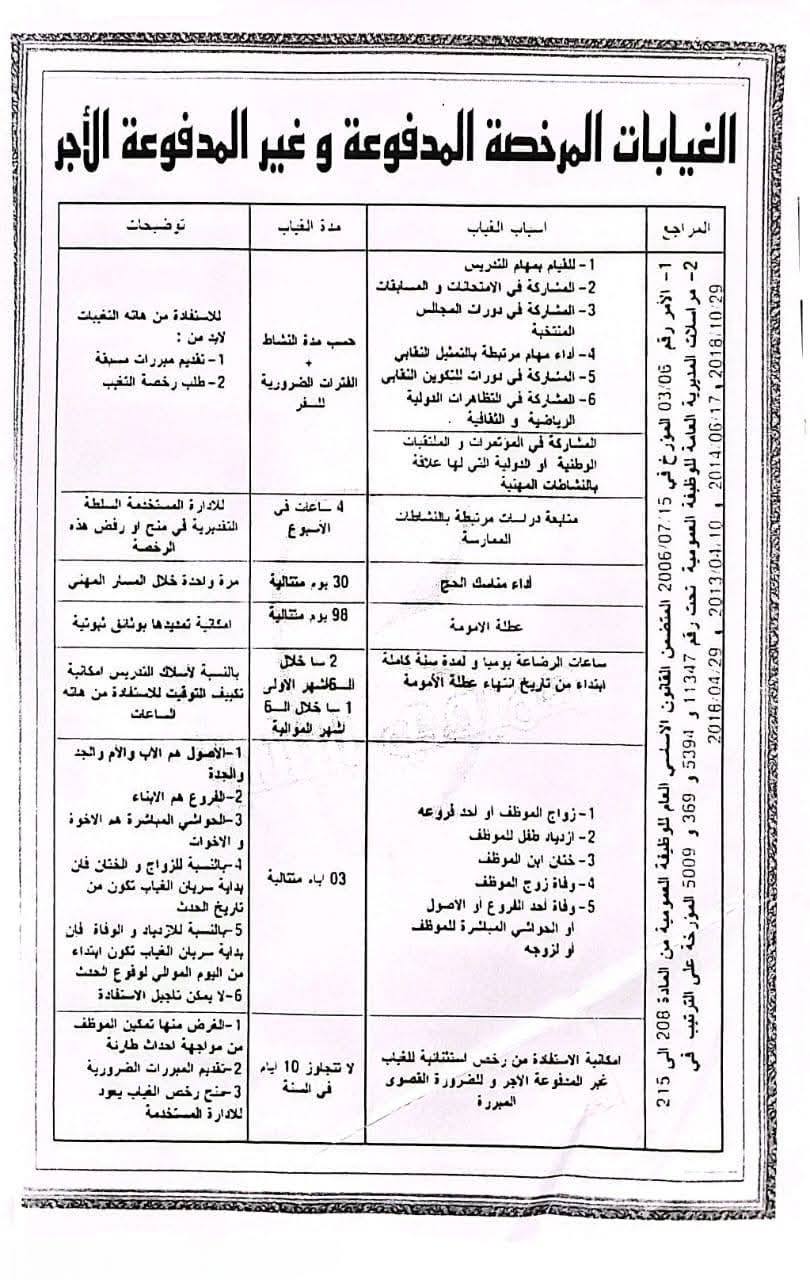 الغيابات المرخصة المدفوعة و غير المدفوعة الأجر
المراجع
اسباب الغياب
مدة الغياب
توضيحات
1- الأمر رقم 03/06 المؤرخ في 2006/07/15 المتضمن القانون الاساسي العام للوظيفة العمومية من المادة 208 الى 215
2- مراسلات المديرية العامة للوظيفة العمومية تحت رقم 11347 و 5394 و 369 و 5009 المؤرخة على الترتيب في
2018/10/29 و 2014/06/17 و 2013/04/10 و 2016/04/29
1- للقيام بمهام التدريس
2- المشاركة في الامتحانات و المسابقات
3- المشاركة في دورات المجالس
المنتخبة
4- أداء مهام مرتبطة بالتمثيل النقابي
5- المشاركة في دورات للتكوين النقابي
6- المشاركة في التظاهرات الدولية
الرياضية و الثقافية .
المشاركة في المؤتمرات و الملتقيات
الوطنية او الدولية التي لها علاقة
بالنشاطات المهنية
حسب مدة النشاط
+
الفترات الضرورية
للسفر
للاستفادة من هاته التغيبات
لابد من :
1- تقديم مبررات مسبقة
2- طلب رخصة التغيب
متابعة دراسات مرتبطة بالنشاطات
الممارسة
4 ساعات في
الأسبوع
للادارة المستخدمة السلطة
التقديرية في منح او رفض هذه
الرخصة
أداء مناسك الحج
30 يوم متتالية
مرة واحدة خلال المسار المهني
عطلة الامومة
98 يوم متتالية
امكانية تمديدها بوثائق ثبوتية
ساعات الرضاعة يوميا و لمدة سنة كاملة
ابتداء من تاريخ انتهاء عطلة الأمومة
2 سا خلال
الـ6اشهر الاولى
1 سا خلال الـ6
اشهر الموالية
بالنسبة لأسلاك التدريس امكانية
تكييف التوقيت للاستفادة من هاته
الساعات
1- زواج الموظف أو أحد فروعه
2- ازدياد طفل للموظف
3- ختان ابن الموظف
4- وفاة زوج الموظف
5- وفاة أحد الفروع أو الاصول
أو الحواشي المباشرة للموظف
أو لزوجه
03 اياء متتالية
1-الأصول هم الاب والأم والجد
والجدة
2-الفروع هم الابناء
3-الحواشي المباشرة هم الاخوة
و الاخوات
4-بالنسبة للزواج و الختان فان
بداية سريان الغياب تكون من
تاريخ الحدث
5-بالنسبة للازدياد و الوفاة فان
بداية سريان الغياب تكون ابتداء
من اليوم الموالي لوقوع الحدث
6-لا يمكن تاجيل الاستفادة
امكانية الاستفادة من رخص استثنائية للغياب
غير المدفوعة الاجر و للضرورة القصوى
المبررة
لا تتجاوز 10 ايام
في السنة
1-الغرض منها تمكين الموظف
من مواجهة احداث طارئة
2-تقديم المبررات الضرورية
3-منح رخص الغياب يعود
للادارة المستخدمة